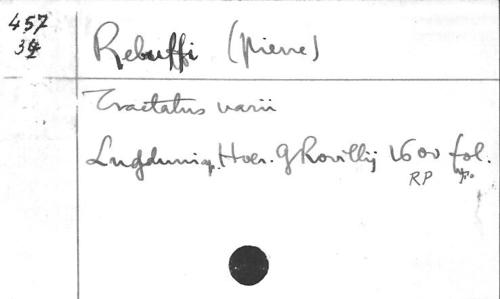 457
34
Rebuffi (Pierre)
Tractatus varii
Lugduni ap. Haer. G Rovillij 1600 fol.
RP